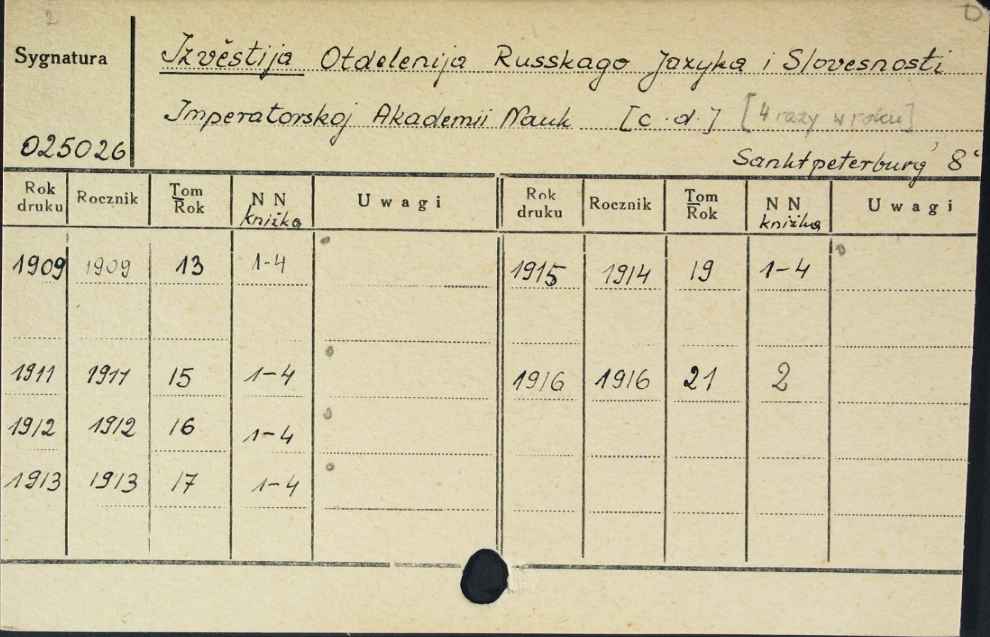 2
Sygnatura
025026
Izvěstija Otdelenija Russkago Jazyka i Slovesnosti
Imperatorskoj Akademii Nauk [c.d.] [4 razy w roku]
Sanktpeterburg' 8°
Rok druku Rocznik Tom Rok N N knižka Uwagi Rok druku Rocznik Tom Rok N N knižka Uwagi
1909 1909 13 1-4 1915 1914 19 1-4
1911 1911 15 1-4 1916 1916 21 2
1912 1912 16 1-4
1913 1913 17 1-4